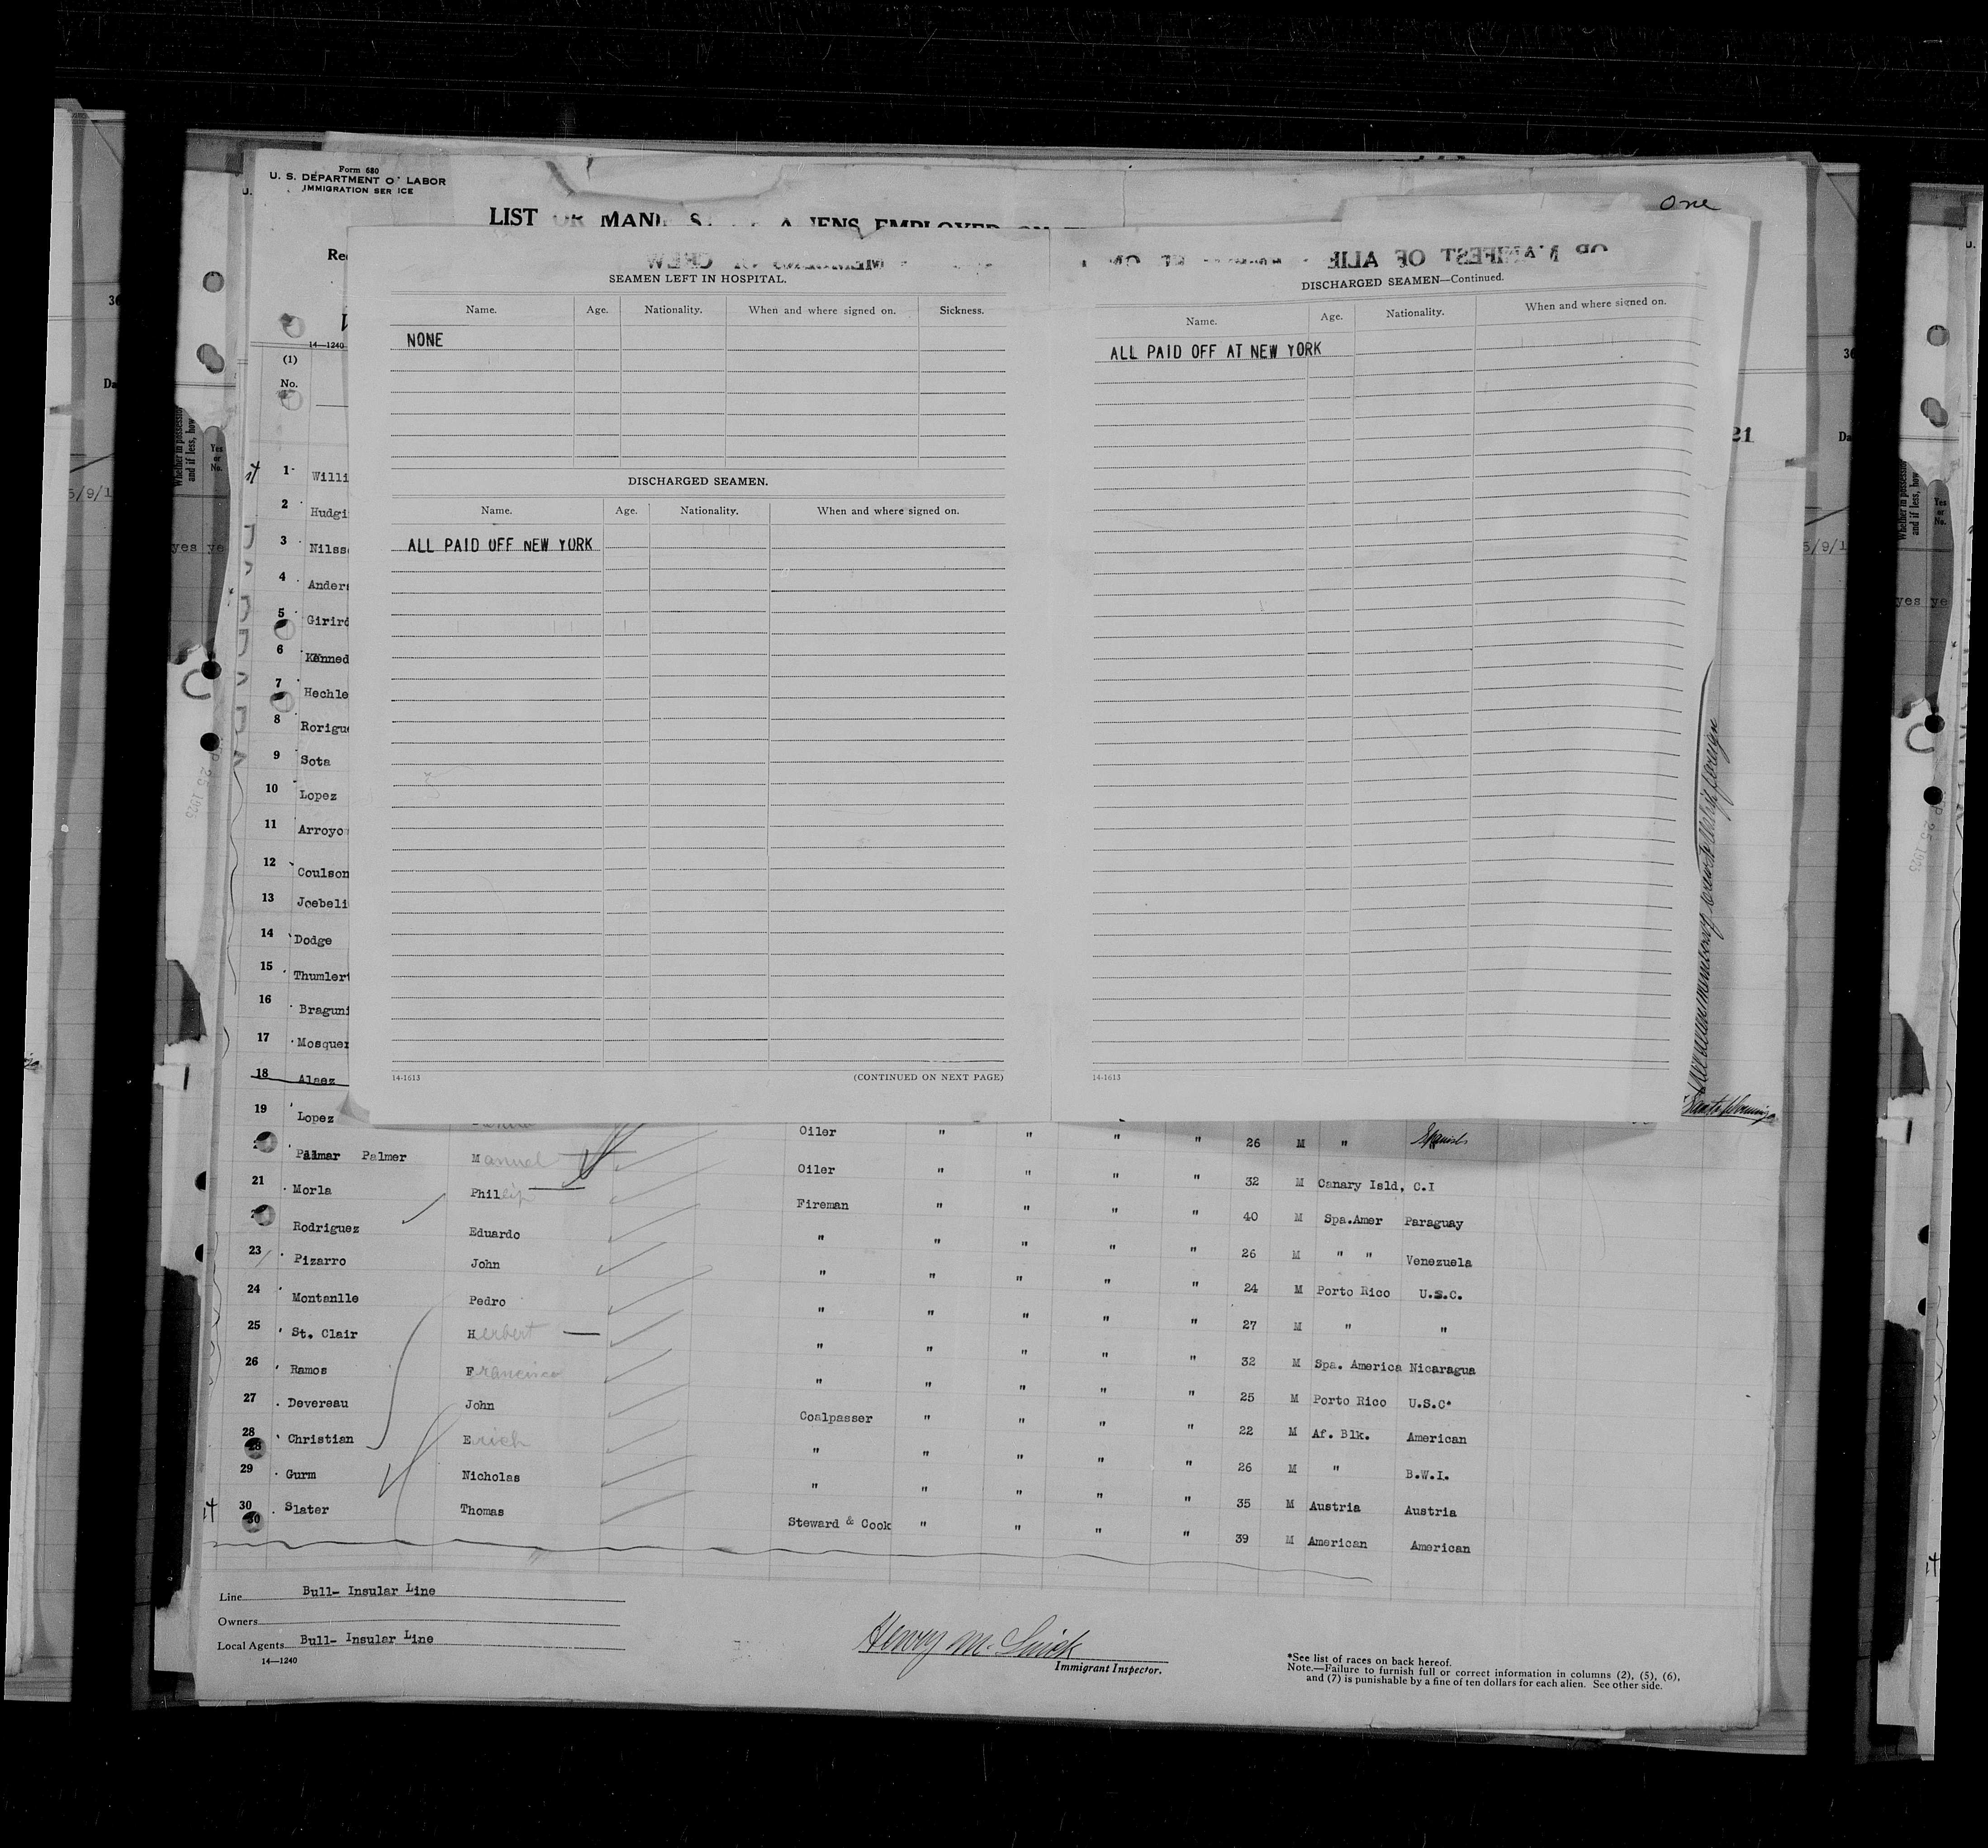 Form 680
U. S. DEPARTMENT O LABOR
IMMIGRATION SER ICE
LIST OR MANI
One
14—1240
(1)
No.
21
SEAMEN LEFT IN HOSPITAL.
Name. Age. Nationality. When and where signed on. Sickness.
NONE
DISCHARGED SEAMEN.
Name. Age. Nationality. When and where signed on.
ALL PAID OFF NEW YORK
14-1613 (CONTINUED ON NEXT PAGE)
DISCHARGED SEAMEN—Continued.
Name. Age. Nationality. When and where signed on.
ALL PAID OFF AT NEW YORK
14-1613
1 Willi
2 Hudgi
3 Nilss
4 Anders
5 Girird
6 Kenned
7 Hechle
8 Rorigu
9 Sota
10 Lopez
11 Arroyo
12 Coulson
13 Joebeli
14 Dodge
15 Thumler
16 Braguni
17 Mosquer
18 Alaez
19 Lopez Oiler " " " " 26 M " Spanish
Palmer Manuel Oiler " " " " 32 M Canary Isld, C.I
21 Morla Philip Fireman " " " " 40 M Spa.Amer Paraguay
Rodriguez Eduardo " " " " " 26 M " " Venezuela
23 Pizarro John " " " " " 24 M Porto Rico U.S.C.
24 Montanlle Pedro " " " " " 27 M " "
25 St. Clair Herbert " " " " " 32 M Spa. America Nicaragua
26 Ramos Francisco " " " " " 25 M Porto Rico U.S.C.
27 Devereau John Coalpasser " " " " 22 M Af. Blk. American
28 Christian Erich " " " " " 26 M " B.W.I.
29 Gurm Nicholas " " " " " 35 M Austria Austria
30 Slater Thomas Steward & Cook " " " " 39 M American American
Line Bull- Insular Line
Owners
Local Agents Bull- Insular Line
14—1240
Immigrant Inspector.
*See list of races on back hereof.
Note.—Failure to furnish full or correct information in columns (2), (5), (6),
and (7) is punishable by a fine of ten dollars for each alien. See other side.